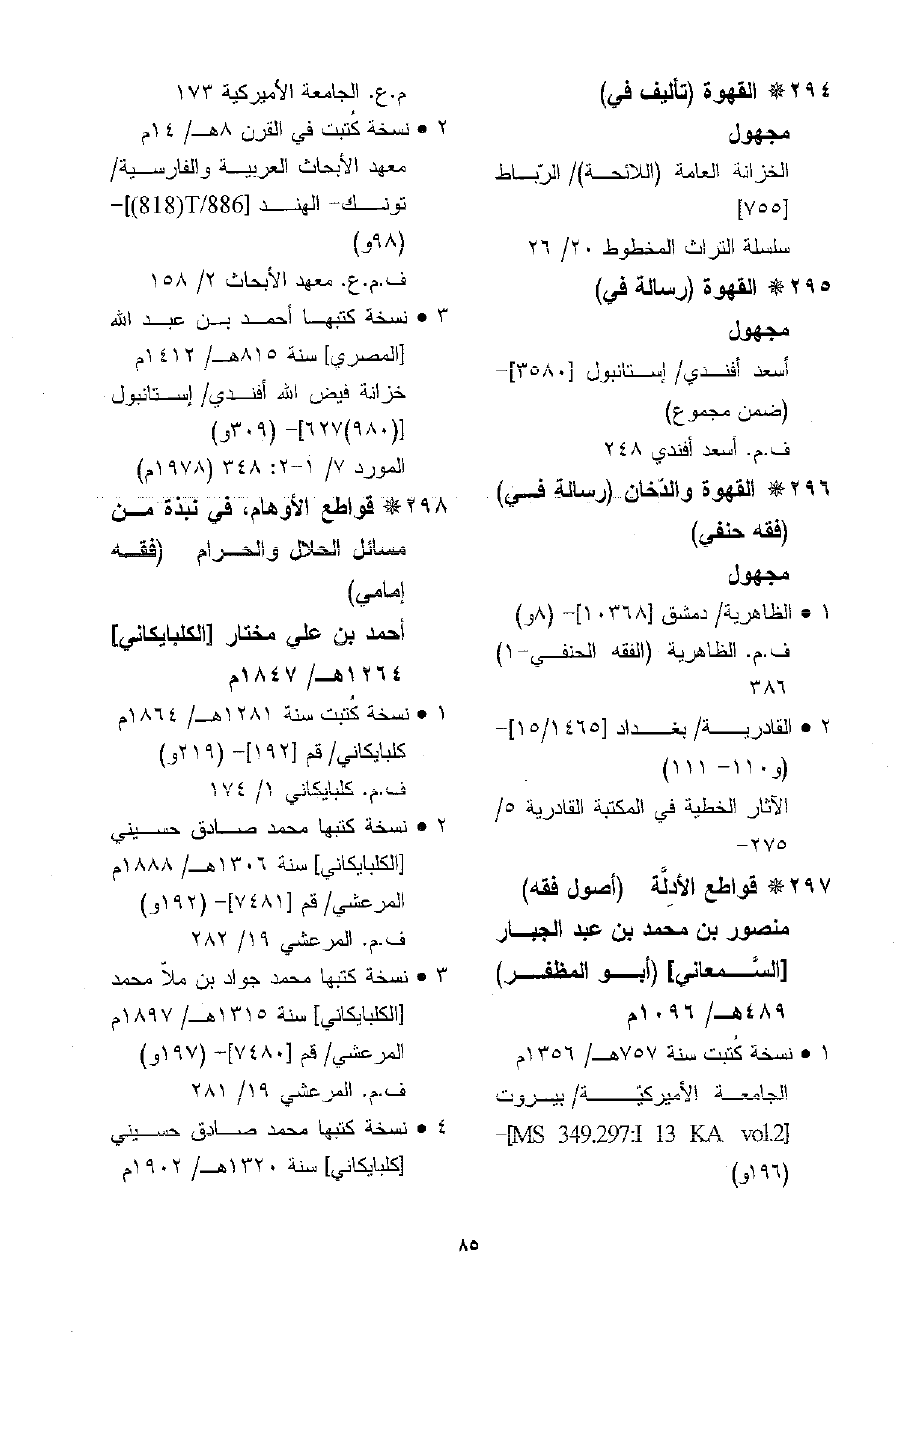 ٢٩٤ * القهوة (تأليف في)
مجهول
الخزانة العامة (اللائحة)/ الربّاط
[٧٥٥]
سلسلة التراث المخطوط ٢٠/ ٢٦
٢٩٥ * القهوة (رسالة في)
مجهول
أسعد أفندي/ إستانبول [٣٥٨٠]-
(ضمن مجموع)
ف.م. أسعد أفندي ٢٤٨
٢٩٦ * القهوة والدّخان (رسالة في)
(فقه حنفي)
مجهول
١ • الظاهرية/ دمشق [١٠٣٦٨]- (٨و)
ف.م. الظاهرية (الفقه الحنفي-١)
٣٨٦
٢ • القادرية/ بغداد [١٥/١٤٦٥]-
(و١١٠- ١١١)
الآثار الخطية في المكتبة القادرية ٥/
٢٧٥-
٢٩٧ * قواطع الأدلَّة (أصول فقه)
منصور بن محمد بن عبد الجبار
[السَّمعاني] (أبو المظفر)
٤٨٩هـ/ ١٠٩٦م
١ • نسخة كُتبت سنة ٧٥٧هـ/ ١٣٥٦م
الجامعة الأميركيّة/ بيروت
[MS 349.297:I 13 KA vol.2]-
(١٩٦و)
م.ع. الجامعة الأميركية ١٧٣
٢ • نسخة كُتبت في القرن ٨هـ/ ١٤م
معهد الأبحاث العربية والفارسية/
تونك- الهند [T/886(818)]-
(٩٨و)
ف.م.ع. معهد الأبحاث ٢/ ١٥٨
٣ • نسخة كتبها أحمد بن عبد الله
[المصري] سنة ٨١٥هـ/ ١٤١٢م
خزانة فيض الله أفندي/ إستانبول
[٦٢٧(٩٨٠)]- (٣٠٩و)
المورد ٧/ ١-٢: ٣٤٨ (١٩٧٨م)
٢٩٨ * قواطع الأوهام، في نبذة من
مسائل الحلال والحرام (فقه
إمامي)
أحمد بن علي مختار [الكلبايكاني]
١٢٦٤هـ/ ١٨٤٧م
١ • نسخة كُتبت سنة ١٢٨١هـ/ ١٨٦٤م
كلبايكاني/ قم [١٩٢]- (٢١٩و)
ف.م. كلبايكاني ١/ ١٧٤
٢ • نسخة كتبها محمد صادق حسيني
[الكلبايكاني] سنة ١٣٠٦هـ/ ١٨٨٨م
المرعشي/ قم [٧٤٨١]- (١٩٢و)
ف.م. المرعشي ١٩/ ٢٨٢
٣ • نسخة كتبها محمد جواد بن ملاّ محمد
[الكلبايكاني] سنة ١٣١٥هـ/ ١٨٩٧م
المرعشي/ قم [٧٤٨٠]- (١٩٧و)
ف.م. المرعشي ١٩/ ٢٨١
٤ • نسخة كتبها محمد صادق حسيني
[كلبايكاني] سنة ١٣٢٠هـ/ ١٩٠٢م
٨٥